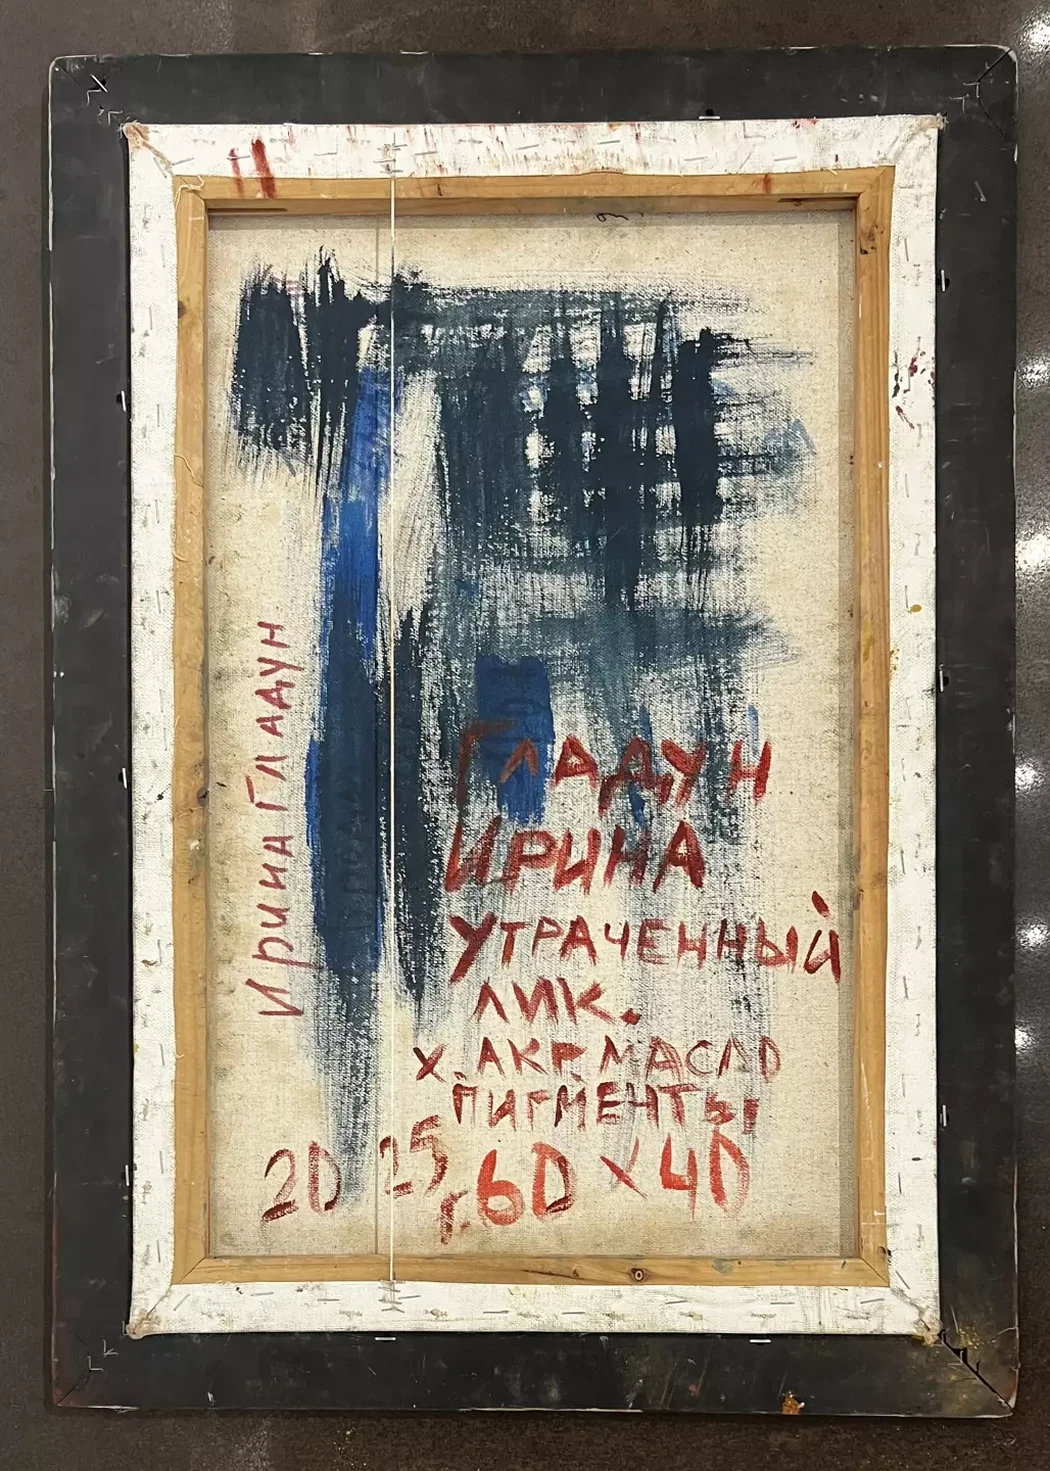 Ирина Гладун
Гладун
Ирина
утраченный
лик.
х. акр. масло
пигменты
2025 г. 60 х 40